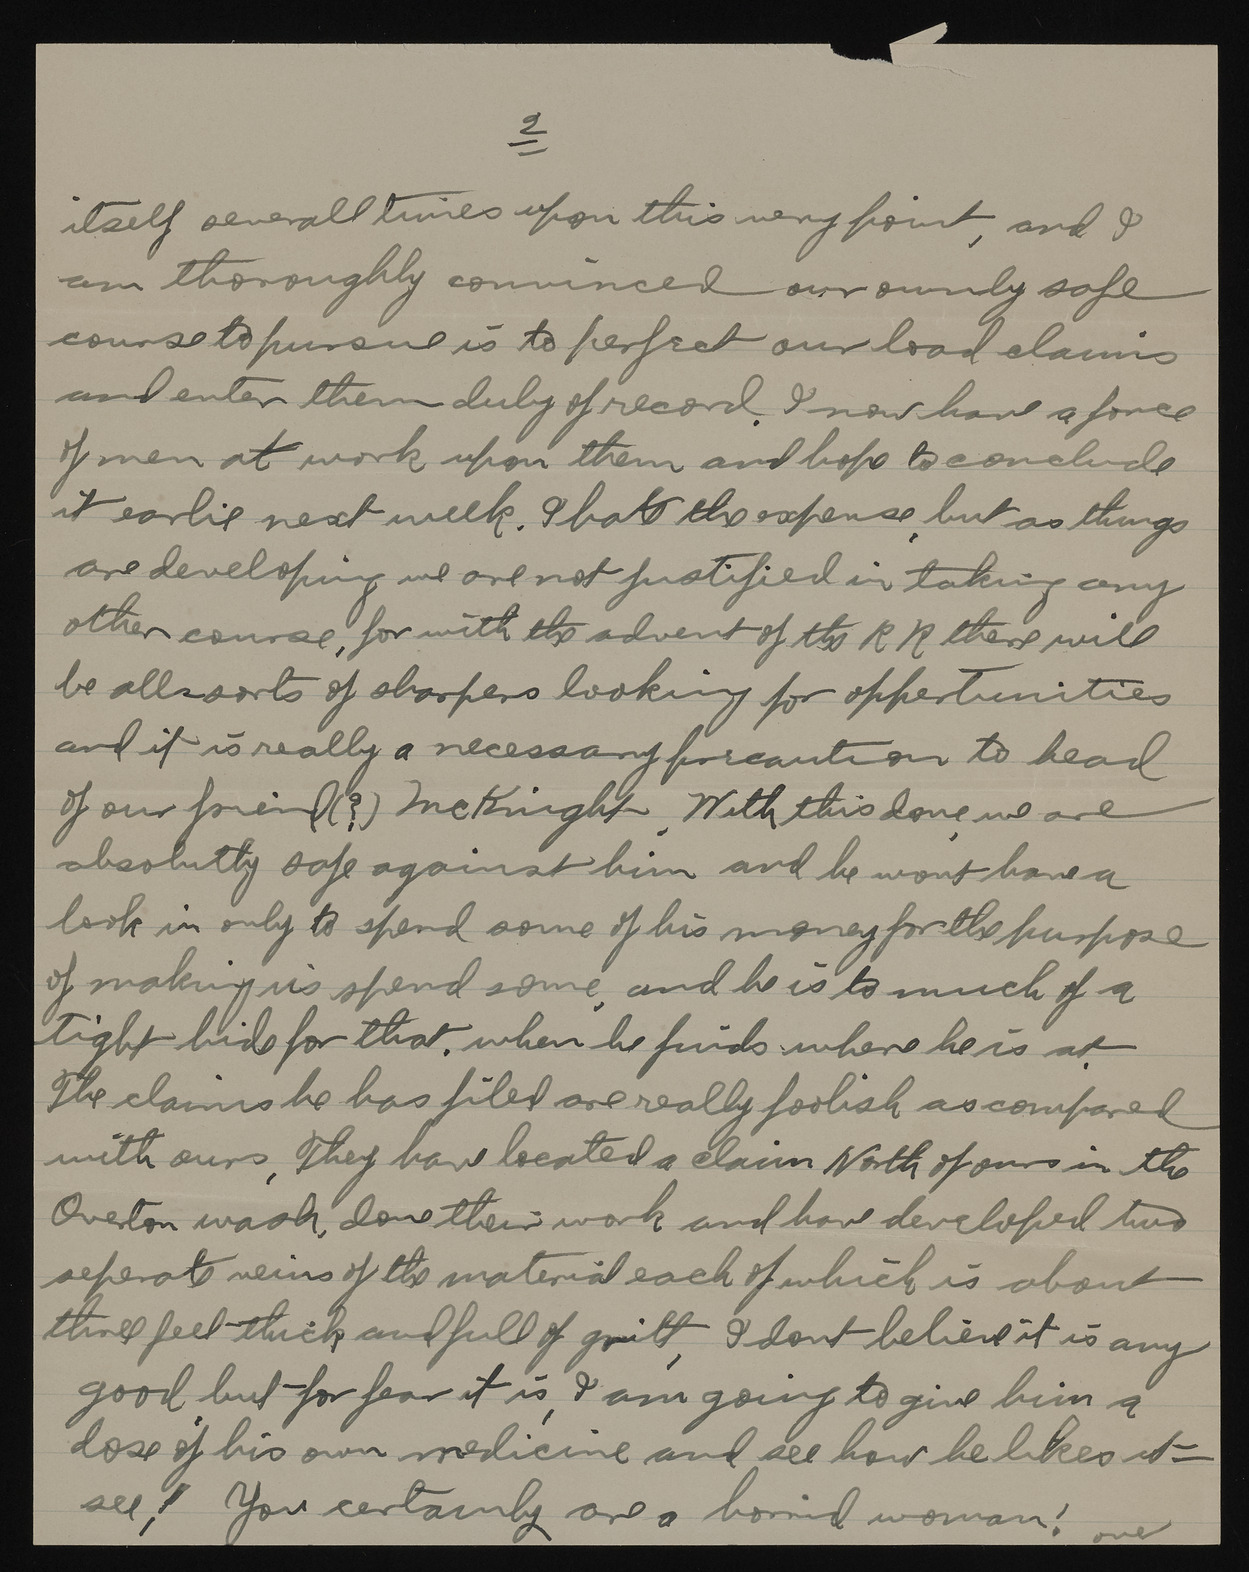 2
itself severall times upon this very point, and I
am thoroughly convinced our ownly safe
course to pursue is to perfect our load claims
and enter them duly of record. I now have a force
of men at work upon them and hope to conclude
it earlie next week. I hate the expense, but as things
are developing we are not justified in taking any
other course, for with the advent of the R R there will
be all sorts of sharpers looking for oppertunities
and it is really a necessary precaution to head
of our friend (?) McKnight. With this done, we are
absolutly safe against him and he wont have a
look in only to spend some of his money for the purpose
of making us spend some, and he is to much of a
tight hide for that. when he finds where he is at.
The claims he has filed are really foolish as compared
with ours, They have located a claim North of ours in the
Overton wash, done their work and have developed two
seperate veins of the material each of which is about
three feet thick and full of gritt, I dont believe it is any
good but for fear it is, I am going to give him a
dose of his own medicine and see how he likes it =
see! You certainly are a horrid woman! over